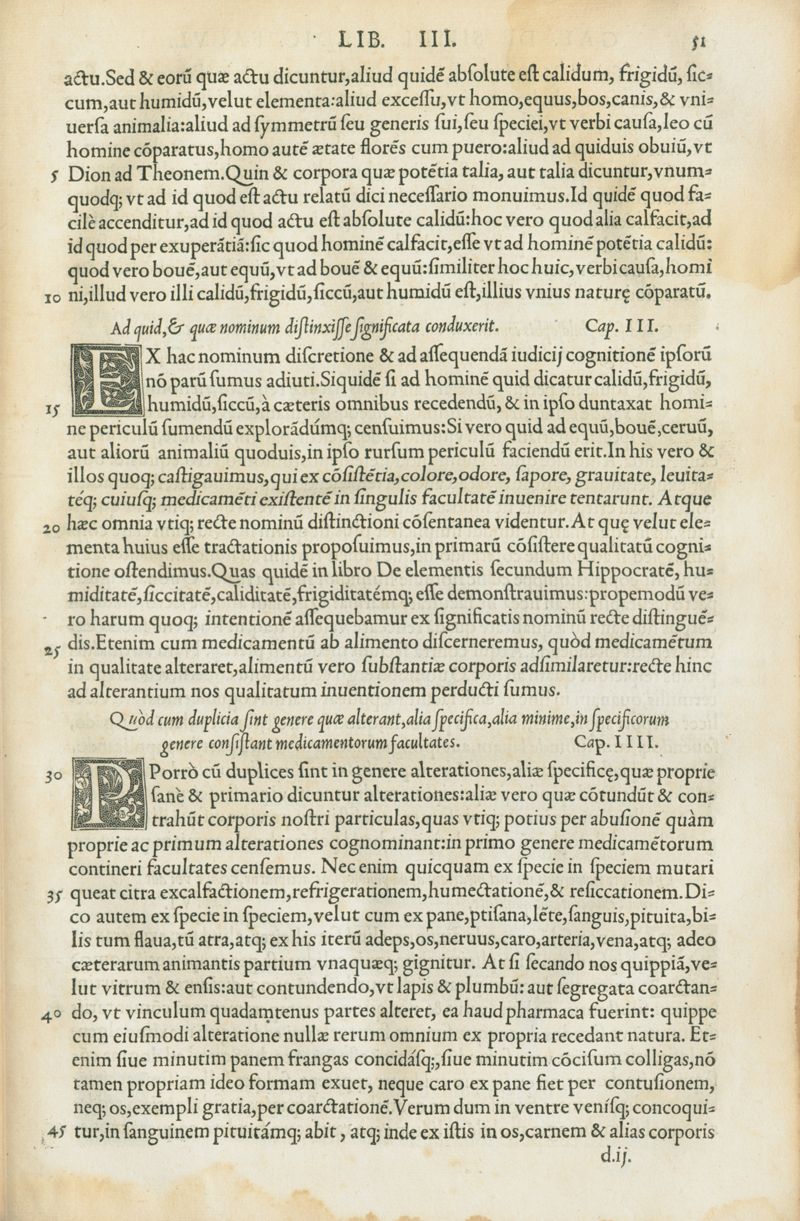 LIB. III. 51
actu.Sed & eorū quæ actu dicuntur,aliud quidē abſolute eſt calidum, frigidū, ſic⸗
cum,aut humidū,velut elementa:aliud exceſſu,vt homo,equus,bos,canis,& vni⸗
uerſa animalia:aliud ad ſymmetrū ſeu generis ſui,ſeu ſpeciei,vt verbi cauſa,leo cū
homine cōparatus,homo autē ætate florēs cum puero:aliud ad quiduis obuiū,vt
5 Dion ad Theonem.Quin & corpora quæ potētia talia, aut talia dicuntur,vnum⸗
quodq; vt ad id quod eſt actu relatū dici neceſſario monuimus.Id quidē quod fa⸗
cilè accenditur,ad id quod actu eſt abſolute calidū:hoc vero quod alia calfacit,ad
id quod per exuperātiā:ſic quod hominē calfacit,eſſe vt ad hominē potētia calidū:
quod vero bouē,aut equū,vt ad bouē & equū:ſimiliter hoc huic,verbi cauſa,homi
10 ni,illud vero illi calidū,frigidū,ſiccū,aut humidū eſt,illius vnius naturę cōparatū.
Ad quid,& quæ nominum diſtinxiſſe ſignificata conduxerit. Cap. III.
EX hac nominum diſcretione & ad aſſequendā iudicij cognitionē ipſorū
nō parū ſumus adiuti.Siquidē ſi ad hominē quid dicatur calidū,frigidū,
15 humidū,ſiccū,à cæteris omnibus recedendū, & in ipſo duntaxat homi⸗
ne periculū ſumendū explorādúmq; cenſuimus:Si vero quid ad equū,bouē,ceruū,
aut aliorū animaliū quoduis,in ipſo rurſum periculū faciendū erit.In his vero &
illos quoq; caſtigauimus,qui ex cōſiſtētia,colore,odore, ſapore, grauitate, leuita⸗
téq; cuiuſq; medicamēti exiſtentē in ſingulis facultatē inuenire tentarunt. Atque
20 hæc omnia vtiq; recte nominū diſtinctioni cōſentanea videntur.At quę velut ele⸗
menta huius eſſe tractationis propoſuimus,in primarū cōſiſtere qualitatū cogni⸗
tione oſtendimus.Quas quidē in libro De elementis ſecundum Hippocratē, hu⸗
miditatē,ſiccitatē,caliditatē,frigiditatémq; eſſe demonſtrauimus:propemodū ve⸗
ro harum quoq; intentionē aſſequebamur ex ſignificatis nominū recte diſtinguē⸗
25 dis.Etenim cum medicamentū ab alimento diſcerneremus, quòd medicamētum
in qualitate alteraret,alimentū vero ſubſtantiæ corporis adſimilaretur:recte hinc
ad alterantium nos qualitatum inuentionem perducti ſumus.
Quòd cum duplicia ſint genere quæ alterant,alia ſpecifica,alia minime,in ſpecificorum
genere conſiſtant medicamentorum facultates. Cap. IIII.
30 POrrò cū duplices ſint in genere alterationes,aliæ ſpecificę,quæ proprie
ſanè & primario dicuntur alterationes:aliæ vero quæ cōtundūt & con⸗
trahūt corporis noſtri particulas,quas vtiq; potius per abuſionē quàm
proprie ac primum alterationes cognominant:in primo genere medicamētorum
contineri facultates cenſemus. Nec enim quicquam ex ſpecie in ſpeciem mutari
35 queat citra excalfactionem,refrigerationem,humectationē,& reſiccationem.Di⸗
co autem ex ſpecie in ſpeciem,velut cum ex pane,ptiſana,lēte,ſanguis,pituita,bi⸗
lis tum flaua,tū atra,atq; ex his iterū adeps,os,neruus,caro,arteria,vena,atq; adeo
cæterarum animantis partium vnaquæq; gignitur. At ſi ſecando nos quippiā,ve⸗
lut vitrum & enſis:aut contundendo,vt lapis & plumbū: aut ſegregata coarctan⸗
40 do, vt vinculum quadamtenus partes alteret, ea haud pharmaca fuerint: quippe
cum eiuſmodi alteratione nullæ rerum omnium ex propria recedant natura. Et⸗
enim ſiue minutim panem frangas concidáſq;,ſiue minutim cōciſum colligas,nō
tamen propriam ideo formam exuet, neque caro ex pane fiet per contuſionem,
neq; os,exempli gratia,per coarctationē.Verum dum in ventre veníſq; concoqui⸗
45 tur,in ſanguinem pituitámq; abit, atq; inde ex iſtis in os,carnem & alias corporis
d.ij.